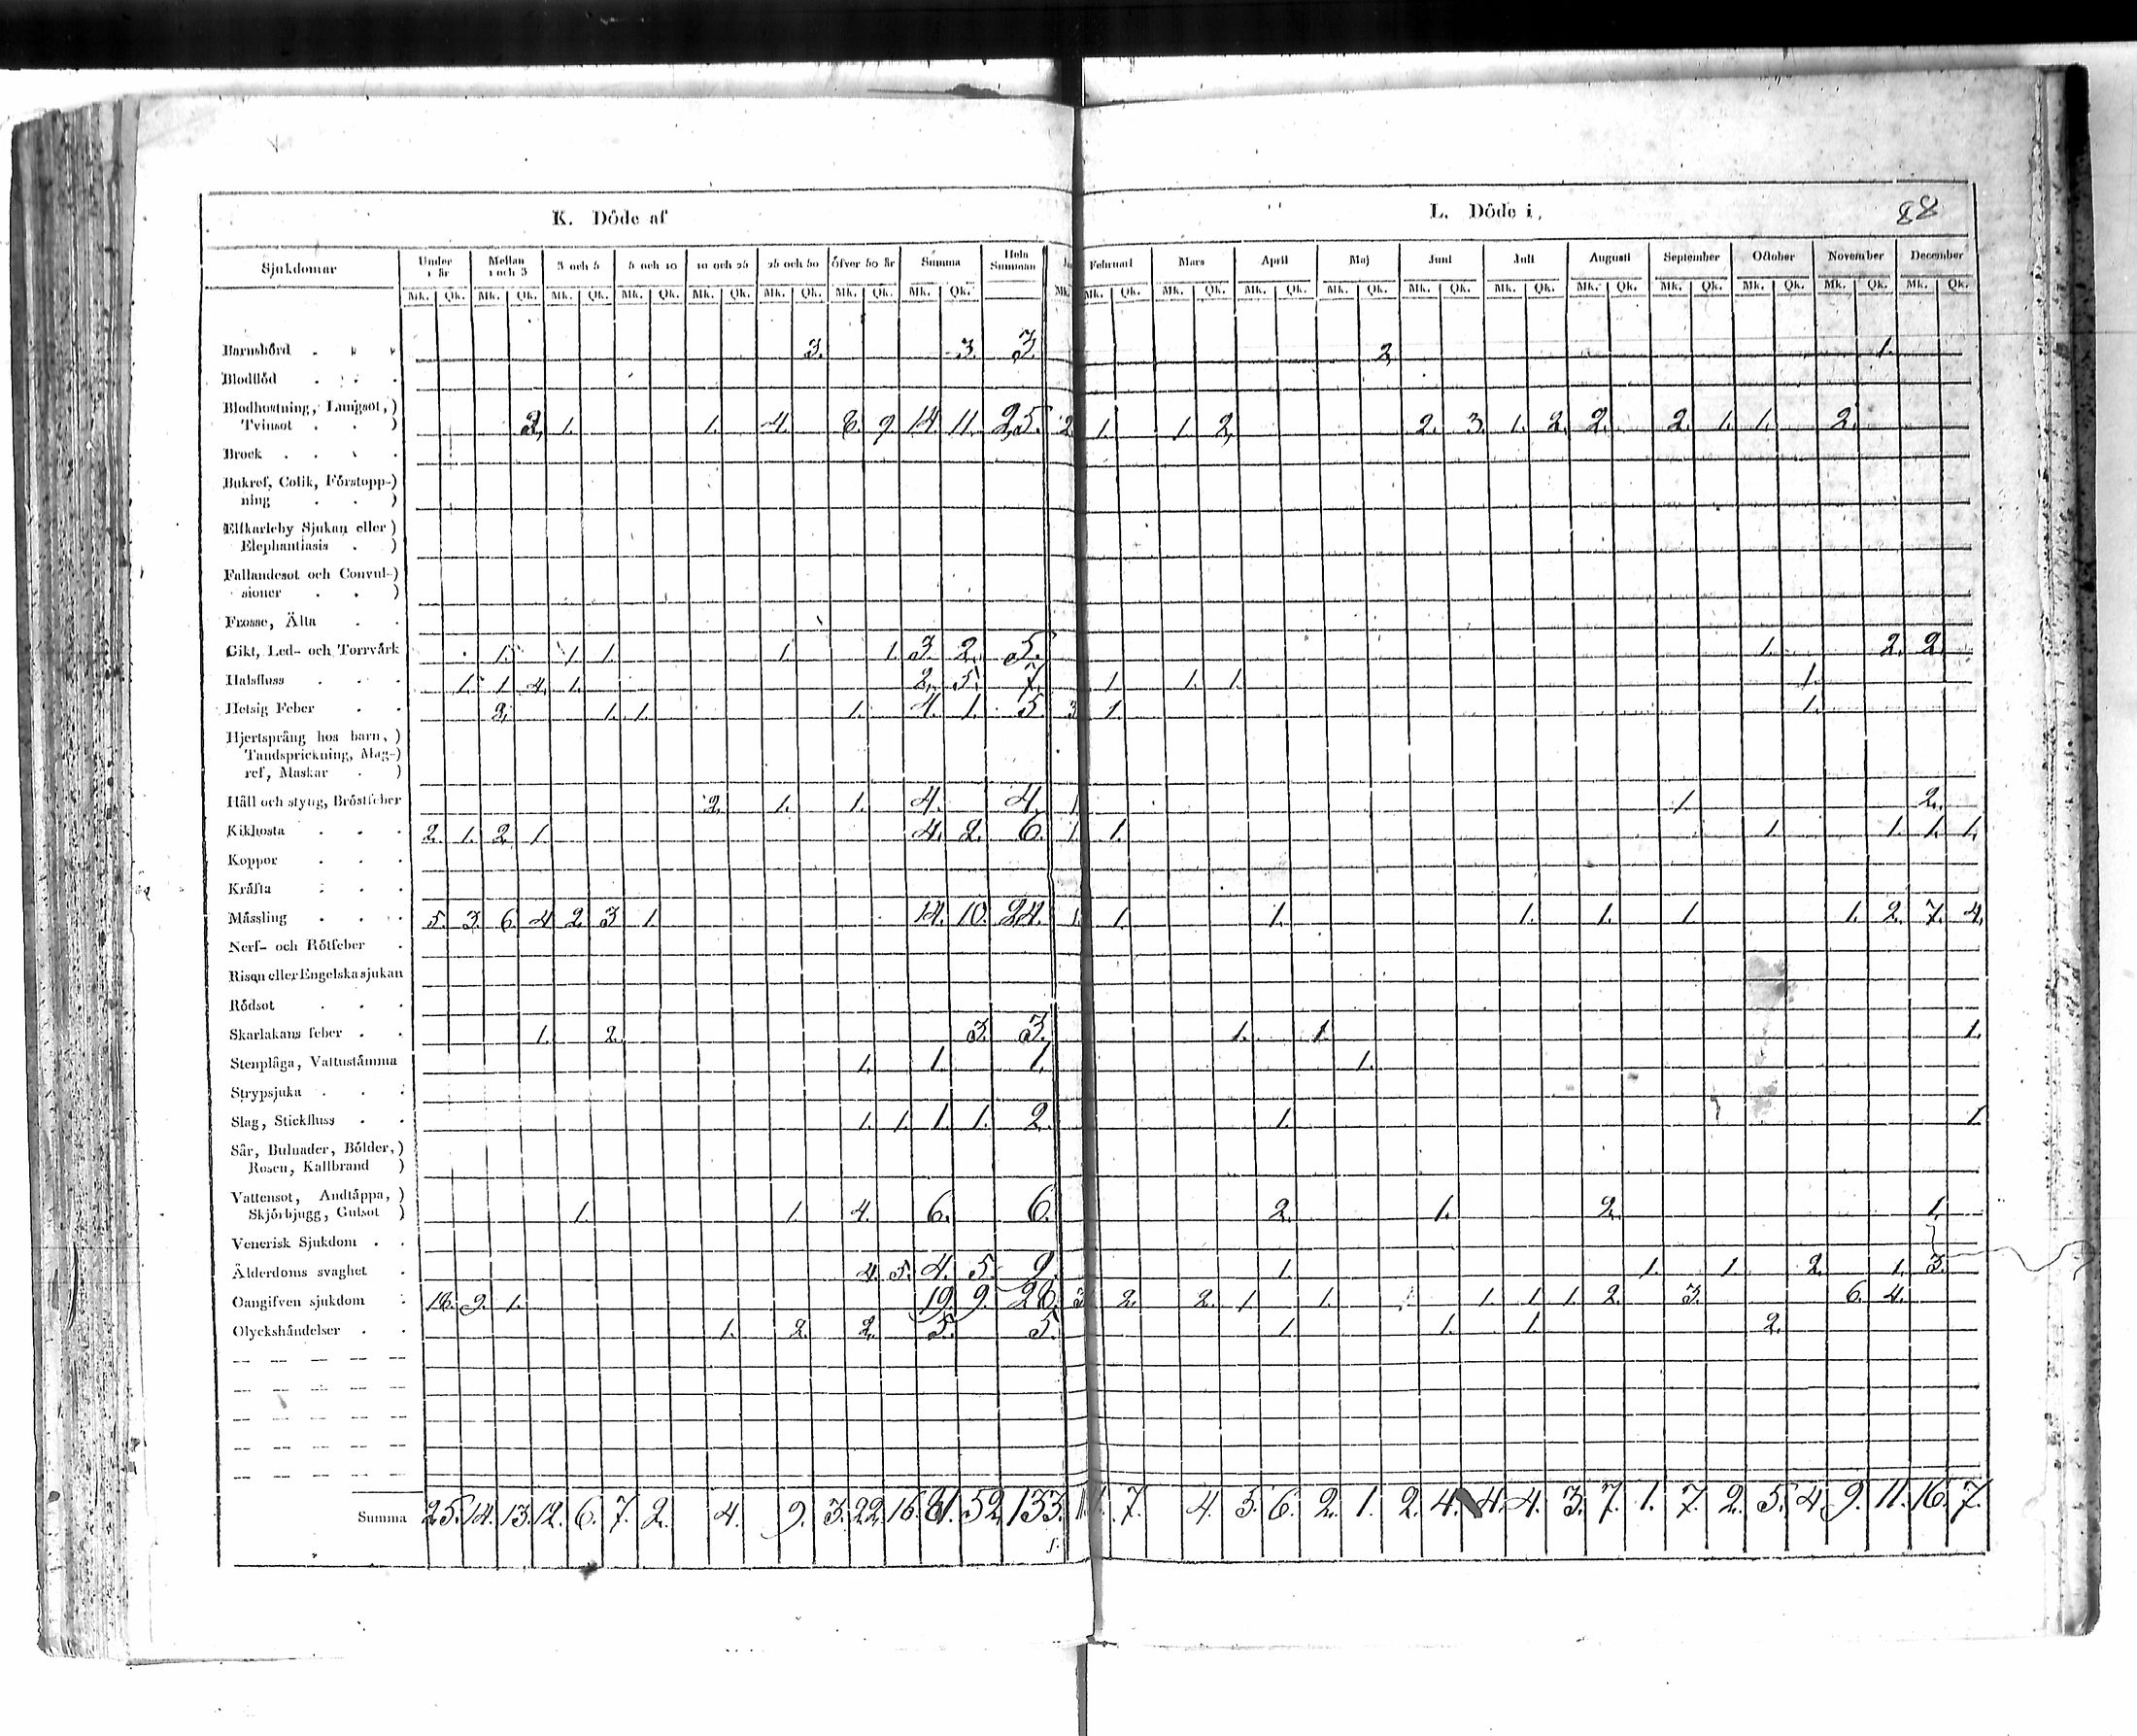 K. Döde af
L. Döde i,
88
Sjukdomar Under 1 år Mellan 1 och 3 3 och 5 5 och 10 10 och 25 25 och 50 öfver 50 år Summa Hela Summan
Februari Mars April Maj Juni Juli Augusti September October November December
Mk. Qk. Mk. Qk. Mk. Qk. Mk. Qk. Mk. Qk. Mk. Qk. Mk. Qk. Mk. Qk. Mk. Mk. Qk. Mk. Qk. Mk. Qk. Mk. Qk. Mk. Qk. Mk. Qk. Mk. Qk. Mk. Qk. Mk. Qk. Mk. Qk. Mk. Qk.
Barnsbörd 3. 3 3. 2 1.
Blodflöd
Blodhostning, Lungsot,)
Tvinsot ) 2, 1. 1. 4. 8. 9. 14. 11. 25. 2 1. 1. 2, 2. 3. 1. 2. 2. 2. 1. 1. 2.
Brock
Bukref, Colik, Förstopp-)
ning )
Elfkarleby Sjukan eller)
Elephantiasis )
Fallandesot och Convul-)
sioner )
Frosse, Älta
Gikt, Led- och Torrvärk 1. 1 1. 1 1. 3. 2. 5. 1. 2. 2.
Halsfluss 1. 1 4. 1. 2. 5. 7. 1 1. 1. 1.
Hetsig Feber 2. 1. 1. 1. 4. 1. 5. 3 1. 1.
Hjertsprång hos barn, )
Tandsprickning, Mag-)
ref, Maskar )
Håll och styng, Bröstfeber 2. 1. 1. 4. 4. 1 1 2.
Kikhosta 2. 1. 2. 1 4. 2. 6. 1. 1. 1. 1. 1. 1.
Koppor
Kräfta
Mässling 5. 3. 6. 4 2. 3 1. 14. 10. 24. 1. 1. 1. 1. 1. 1. 1. 2. 7. 4.
Nerf- och Rötfeber
Risen eller Engelska sjukan
Rödsot
Skarlakans feber 1. 2. 3. 3. 1. 1. 1.
Stenplåga, Vattustämma 1. 1. 1. 1.
Strypsjuka
Slag, Stickfluss 1. 1. 1. 1. 2. 1. 1.
Sår, Bulnader, Bölder,)
Rosen, Kallbrand )
Vattensot, Andtäppa, )
Skjörbjugg, Gulsot ) 1. 1. 4. 6. 6. 2. 1. 2. 1.
Venerisk Sjukdom
Ålderdoms svaghet 4. 5. 4. 5. 9. 1. 1. 1. 2. 1. 3.
Oangifven sjukdom 18. 9. 1. 19. 9. 28. 3 2. 2. 1 1. 1. 1. 1. 2. 3. 6. 4.
Olyckshändelser 1. 2. 2. 5. 5. 1. 1. 1. 2.
Summa 25. 14. 13. 12. 6. 7. 2. 4. 9. 3. 22. 16. 81. 52. 133. 7. 4. 5. 6. 2. 1. 2. 4. 4. 4. 3. 7. 1. 7. 2. 5. 4 9. 11. 16. 7.